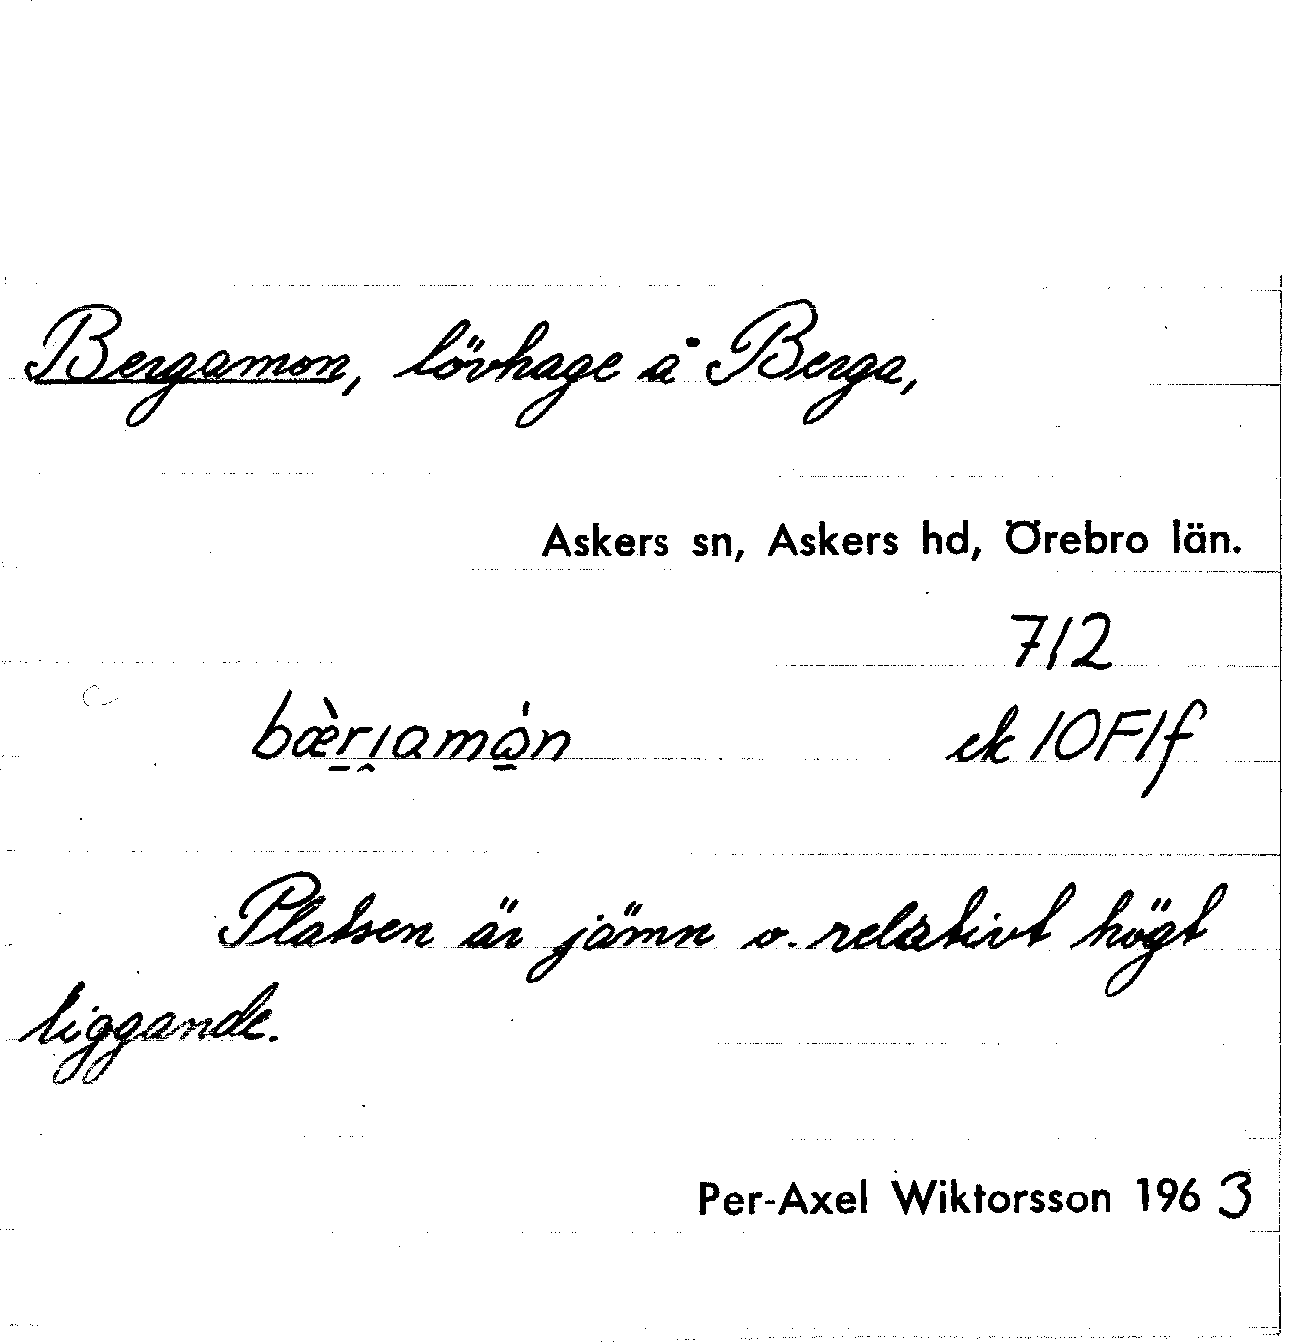 Bergamon, lövhage å Berga,
Askers sn, Askers hd, Örebro län.
712
bæ̀r̠ı̯amɷ̠́n ek 10F1f
Platsen är jämn o. relativt högt
liggande.
Per-Axel Wiktorsson 1963